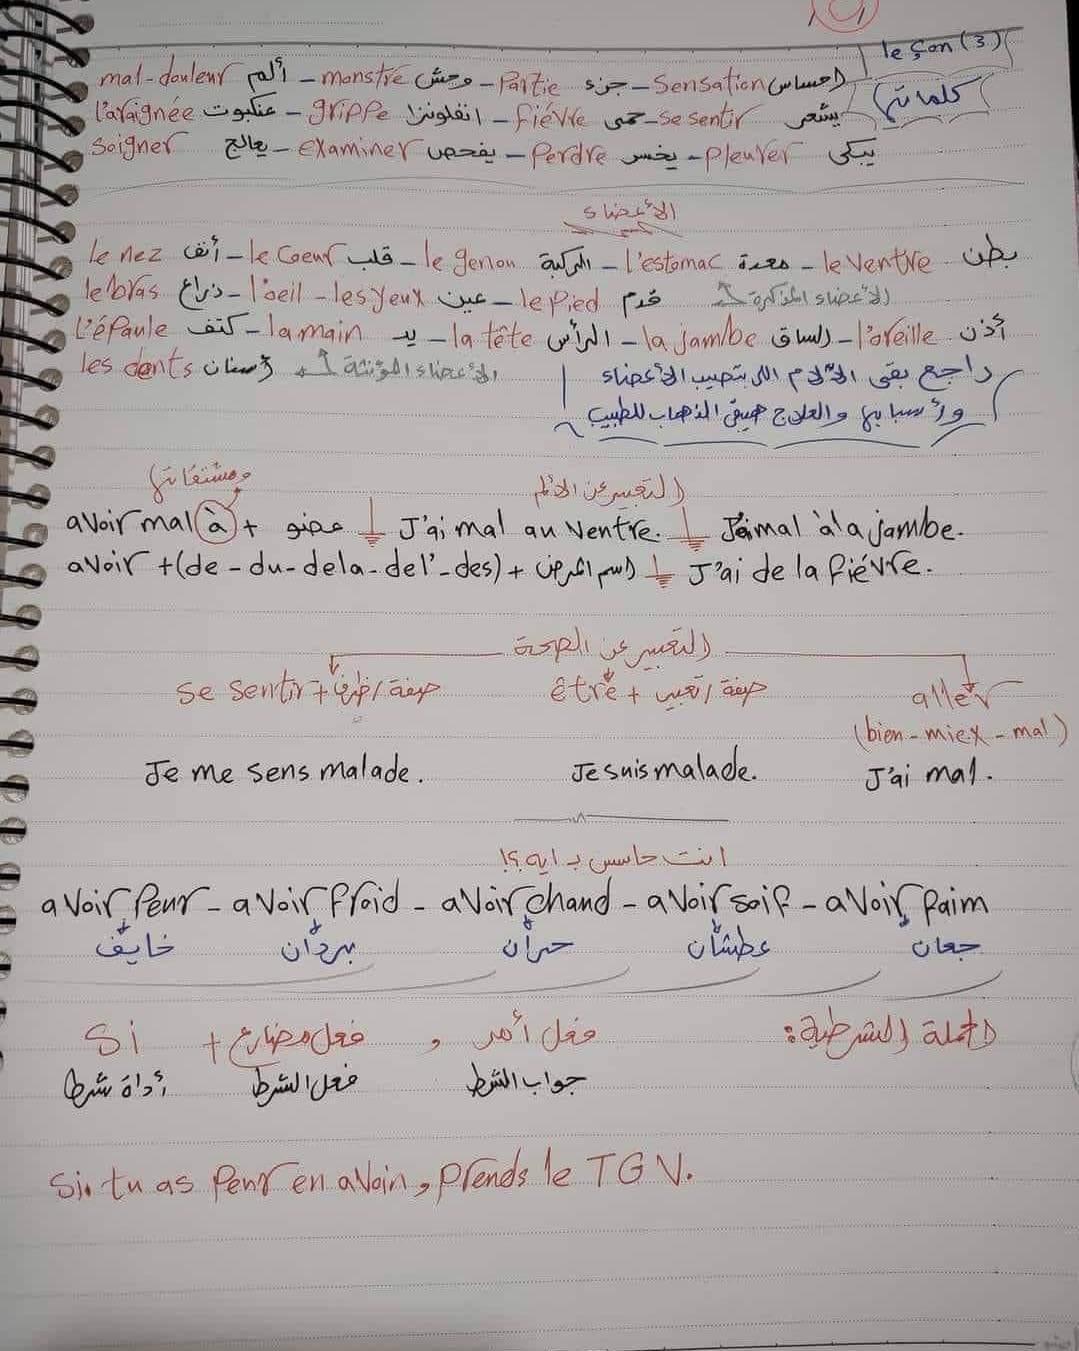 leçon (3)
mal-douleur ألم - monstre وحش - Partie جزء - Sensation احساس
كلماتي
l'araignée عنكبوت - grippe انفلونزا - fiévre حمى - se sentir يشعر
soigner يعالج - examiner يفحص - Perdre يخسر - pleurer يبكى
الأعضاء
le nez أنف - le Coeur قلب - le genou الركبة - l'estomac معدة - le Ventre بطن
le bras ذراع - l'oeil - les yeux عين - le Pied قدم الأعضاء المذكرة
L'épaule كتف - la main يد - la tête الرأس - la jambe الساق - l'oreille أذن
les dents أسنان الأعضاء المؤنثة
راجع بقى الآلام اللى بتصيب الأعضاء
وأسبابها والعلاج هيبقى الذهاب للطبيب
التعبير عن الألم ومشتقاتها
avoir mal à + عضو J'ai mal au Ventre. J'ai mal à la jambe.
avoir + (de - du - de la - de l' - des) + اسم المرض J'ai de la fiévre.
التعبير عن الصحة
se sentir + صفة / ظرف être + صفة / تعبير aller
(bien - miex - mal)
Je me sens malade. Je suis malade. J'ai mal.
انت حاسس بـ ايه؟!
avoir Peur - avoir froid - avoir chand - avoir soif - avoir faim
خايف بردان حران عطشان جعان
الجملة الشرطية: Si + فعل مضارع , فعل أمر
أداة شرط فعل الشرط جواب الشرط
Si tu as Peur en avoin, Prends le TGV.